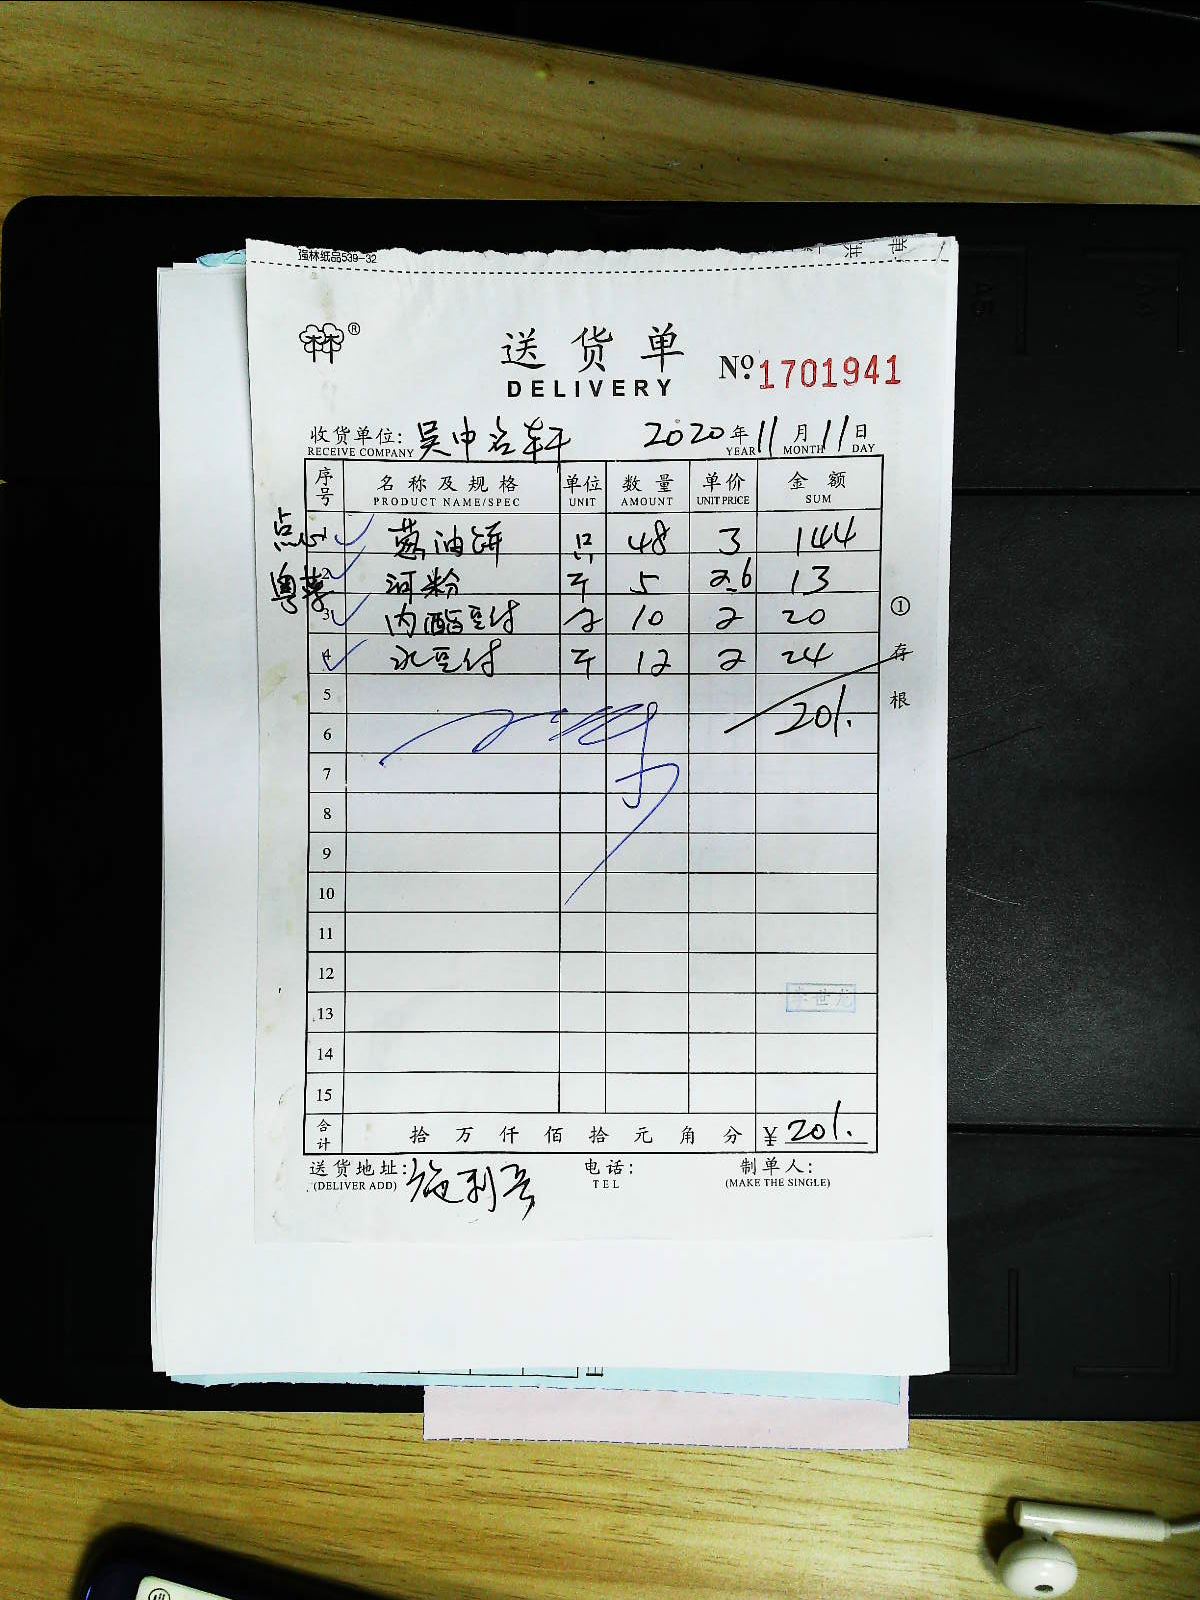 强林纸品539-32
林®
送货单
DELIVERY
Nº 1701941
收货单位: 吴中名轩 2020年11月11日
RECEIVE COMPANY YEAR MONTH DAY
序号 名称及规格 单位 数量 单价 金额
PRODUCT NAME/SPEC UNIT AMOUNT UNIT PRICE SUM
点心 1 葱油饼 只 48 3 144
粤菜 2 河粉 斤 5 2.6 13
3 内酯豆付 10 2 20
4 水豆付 斤 12 2 24
5
201.
6
7
8
9
10
11
12
13 李世龙
14
15
合计 拾万仟佰拾元角分 ¥201.
送货地址: 施利 电话: 制单人:
(DELIVER ADD) TEL (MAKE THE SINGLE)
①存根